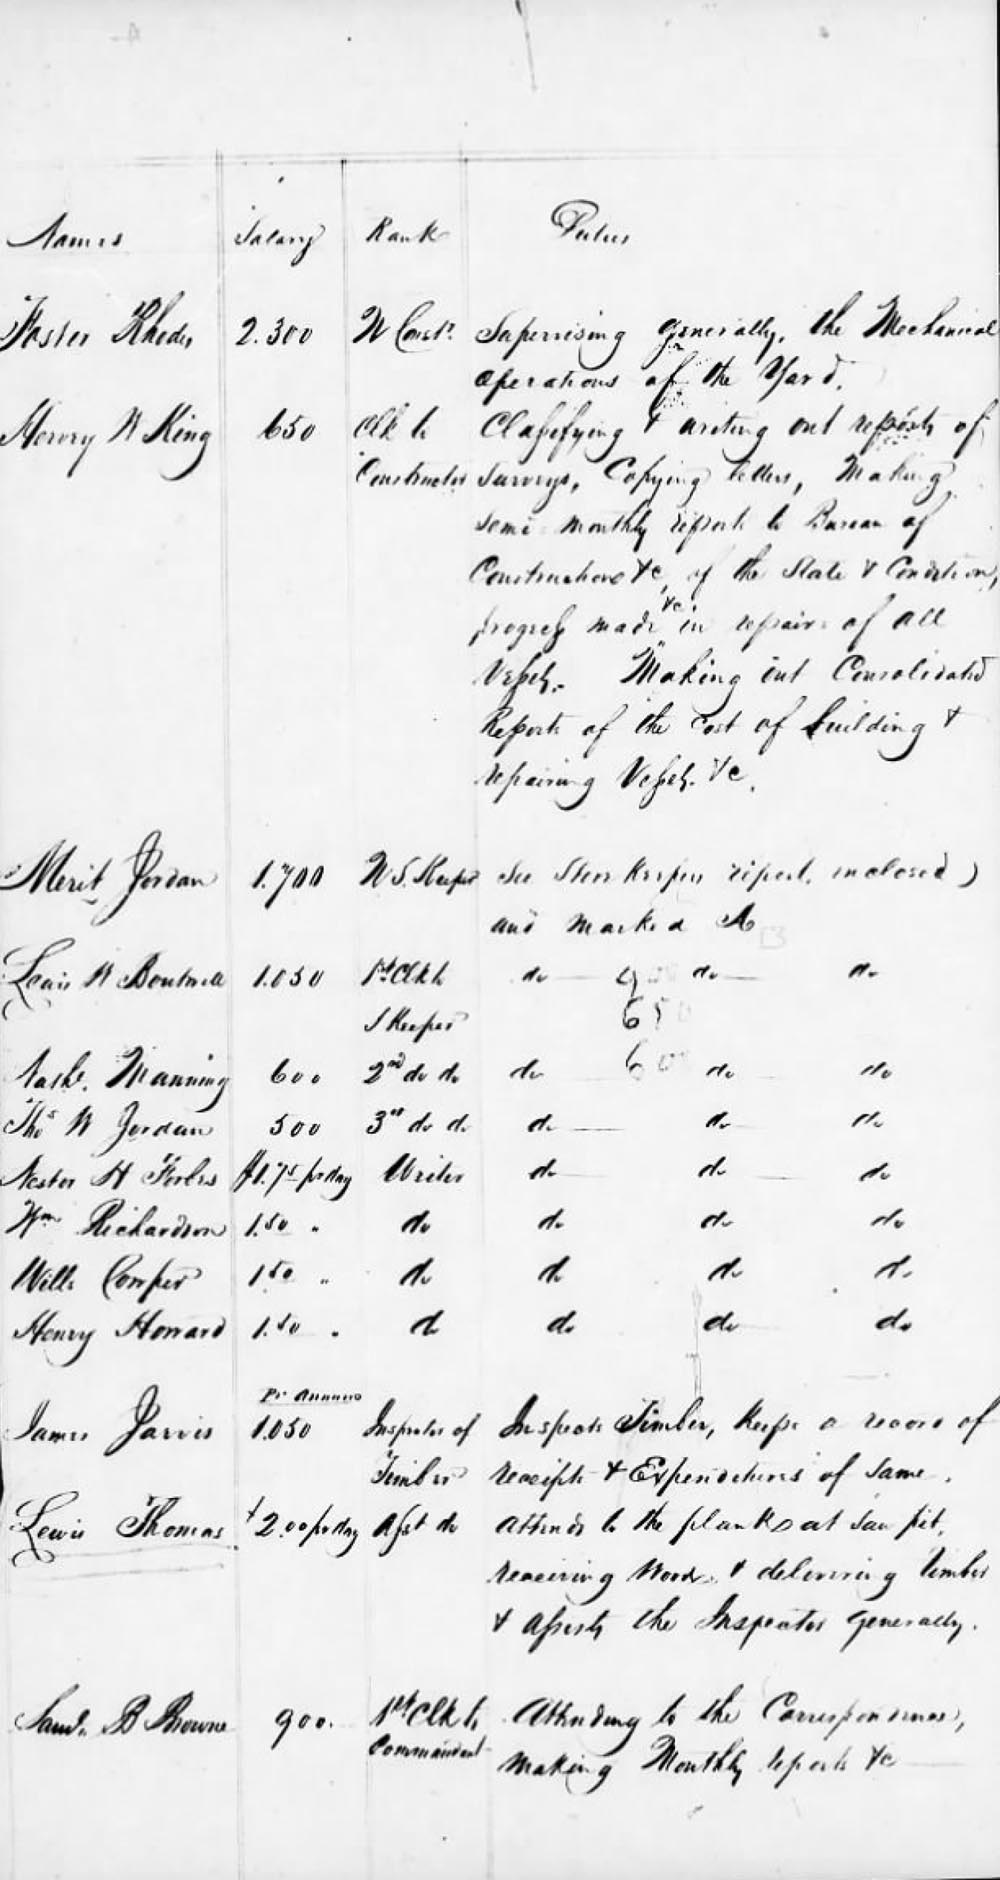 Names Salary Rank Duties
Foster Rhodes 2.300 N Constr. Supervising generally, the Mechanical
operations of the Yard.
Henry W King 650 Clk to Classifying & writing out reports of
Constructor Surveys, Copying letters, Making
semi-monthly reports to Bureau of
Construction &c, of the State & Condition,
&c.
progress made in repairs of all
Vessels. Making out Consolidated
Reports of the Cost of building &
repairing Vessels. &c.
Merit Jordan 1.700 N.S. Keeper See Store Keepers report, inclosed)
and marked A
Lewis W Boutwell 1.050 1st Clk to do do do
S Keeper 650
Manning 600 2nd do do do do do
Thos W Jordan 500 3rd do do do do do
Nestor H Forbes $1.75 pr day Writer do do do
Wm Richardson 1.50 " do do do do
Wills Cowper 1.50 " do do do do
Henry Howard 1.50 " do do do do
Pr Annum
James Jarvis 1.050 Inspector of Inspects Timber, keeps a record of
Timber receipts & Expenditures of same.
Lewis Thomas $2.00 pr day Asst do attends to the planks at Saw pit,
receiving Wood & delivering timber
& assists the Inspector generally.
Saml. B Browne 900. 1st Clk to Attending to the Correspondence,
Commandant making Monthly reports &c